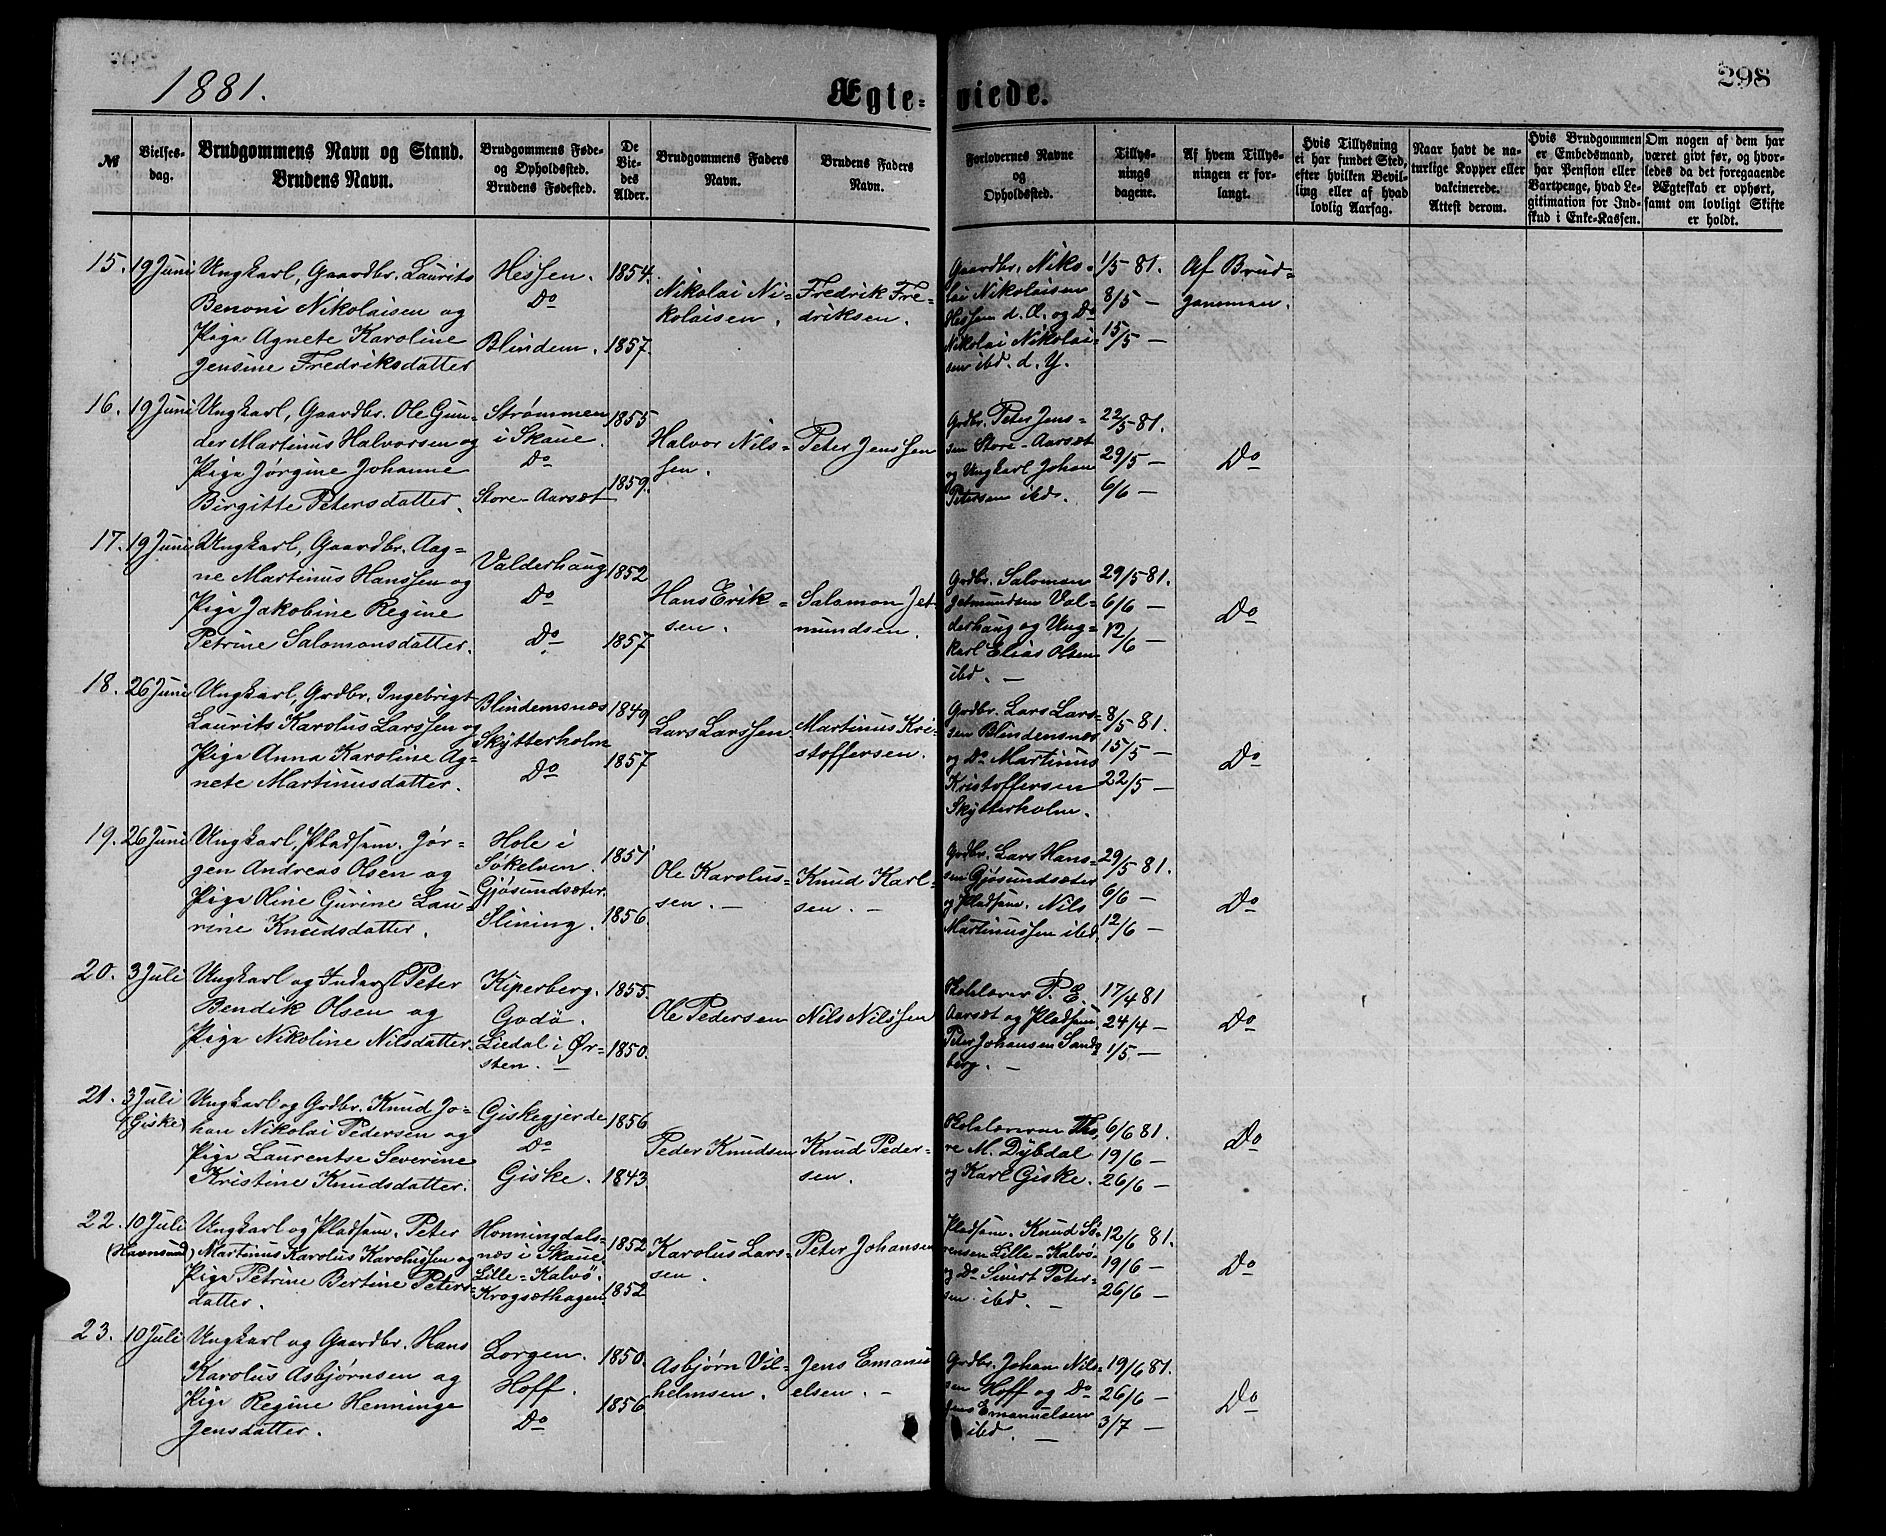 298
1881.
Ægte-viede.
№
Vielses-
dag.
Brudgommens Navn og Stand.
Brudens Navn.
Brudgommens Føde-
og Opholdssted.
Brudens Fødested.
De
Vie-
des
Alder.
Brudgommens Faders
Navn.
Brudens Faders
Navn.
Forlovernes Navne
og
Opholdssted.
Tillys-
nings
dagene.
Af hvem Tillys-
ningen er for-
langt.
Hvis Tillysning
ei har fundet Sted,
efter hvilken Bevil-
ling eller af hvad
lovlig Aarsag.
Naar havt de na-
turlige Kopper eller
vakcinerede.
Attest derom.
Hvis Brudgommen
er Embedsmand,
har Pension eller
Vartpenge, hvad Le-
gitimation for Ind-
skud i Enke-Kassen.
Om nogen af dem har
været givt før, og hvor-
ledes da det foregaaende
Ægteskab er ophørt,
samt om lovligt Skifte
er holdt.
15.
19 Juni
Ungkarl, Gaardbr. Laurits
Benoni Nikolaisen og
Pige Agnete Karoline
Jensine Fredriksdatter
Hessen.
Do
Blindem.
1854.
1857.
Nikolai Ni-
kolaisen.
Fredrik Fre-
driksen.
Gaardbr. Niko-
lai Nikolaisen
Hessen d. Æ. og Do
Nikolai Nikolai-
sen ibd. d. Y.
1/5 81.
8/5 —
15/5 —
Af Brud-
gommen.
16.
19 Juni
Ungkarl, Gaardbr. Ole Gun-
der Martinus Halvorsen og
Pige Jørgine Johanne
Birgitte Petersdatter.
Strømmen
i Skaue.
Do
Store-Aarsæt
1855
1859.
Halvor Nils-
sen.
Peter Jenssen
Grdbr. Peter Jens-
sen Store-Aarsæt
og Ungkarl Johan
Petersen ibd.
22/5 81.
29/5 —
6/6 —
Do
17.
19 Juni
Ungkarl, Gaardbr. Aag-
ne Martinus Hanssen og
Pige Jakobine Regine
Petrine Salomonsdatter.
Valderhaug
Do
Do
1852
1857
Hans Erik-
sen.
Salomon Jet-
mundsen.
Grdbr. Salomon
Jetmundsen Val-
derhaug og Ung-
karl Elias Olsen
ibd. —
29/5 81.
6/6 —
12/6 —
Do
18.
26 Juni
Ungkarl, Grdbr. Ingebrigt
Laurits Karolus Larssen og
Pige Anna Karoline Ag-
nete Martinusdatter.
Blindemsnæs
Skytterholm
Do
1849
1857
Lars Larssen
Martinus Kri-
stoffersen.
Grdbr. Lars Lars-
sen Blindemsnæs
og Do Martinus
Kristoffersen
Skytterholm.
8/5 81.
15/5 —
22/5 —
Do
19.
26 Juni
Ungkarl, Pladsm. Jør-
gen Andreas Olsen og
Pige Oline Gurine Lau-
rine Knudsdatter.
Hole i
Søkelven.
Gjøsundsæter.
Slining.
1851
1856.
Ole Karolus-
sen. —
Knud Karl-
sen. —
Grdbr. Lars Hans-
sen Gjøsundsæter
og Pladsm. Nils
Martinussen ibd.
29/5 81.
6/6 —
12/6 —
Do
20.
3 Juli
Ungkarl og Inderst Peter
Bendik Olsen og
Pige Nikoline Nilsdatter.
Kiperberg.
Godø.
Liedal i Ør-
sten. —
1855.
1850.
Ole Pedersen
Nils Nilssen
Skolelærer P. E.
Aarsæt og Pladsm.
Peter Johansen Sand-
berg. —
17/4 81
24/4 —
1/5 —
Do
21.
3 Juli
(Giske)
Ungkarl og Grdbr. Knud Jo-
han Nikolai Pedersen og
Pige Laurentse Severine
Kristine Knudsdatter.
Giskegjerde
Do
Giske.
1856
1843
Peder Knudsen
Knud Peder-
sen.
Skolelærerne Tho-
re M. Dybdal
og Karl Giske.
6/6 81.
19/6 —
26/6 —
Do
22.
10 Juli
(Havnsund)
Ungkarl og Pladsm. Peter
Martinus Karolus Karolussen og
Pige Petrine Bertine Peters-
datter.
Honningdals-
næs i Skaue
Lille-Kalvø.
Krogsæthagen
1852
1852
Karolus Lars-
sen.
Peter Johansen
Pladsm. Knud Sø-
rensen Lille-Kalvø
og Do Sivert Peter-
sen ibd. —
12/6 81.
19/6 —
26/6 —
Do
23.
10 Juli
Ungkarl og Gaardbr. Hans
Karolus Asbjørnsen og
Pige Regine Henninge
Jensdatter.
Lorgen.
Hoff.
Do
1850.
1856
Asbjørn Vil-
helmsen.
Jens Emanu-
elsen. —
Grdbr. Johan Nils-
sen Hoff og Do
Jens Emanuelsen
ibd. —
19/6 81.
26/6 —
3/7 —
Do